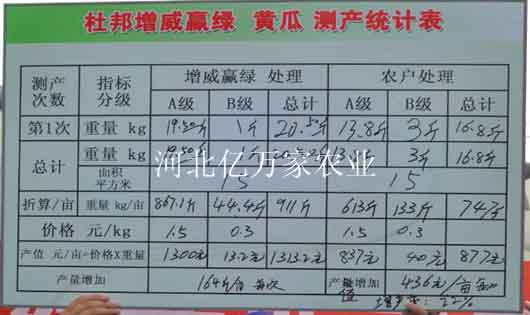 杜邦增威赢绿 黄瓜 测产统计表
测产次数 指标分级 增威赢绿 处理 农户处理
A级 B级 总计 A级 B级 总计
第1次 重量 kg 19.50斤 1斤 20.50斤 13.8斤 3斤 16.8斤
总计 重量 kg 19.50斤 1斤 3斤 16.8斤
面积 平方米 15 15
折算/亩 重量 kg/亩 867.1斤 44.4斤 911斤 613斤 133斤 747斤
价格 元/kg 1.5 0.3 1.5 0.3
产值 元/亩=价格X重量 1300元 13.2元 1313.2元 837元 40元 877元
产量增加 164斤/亩 每次 产值增加 436元/亩 每次
河北亿万家农业